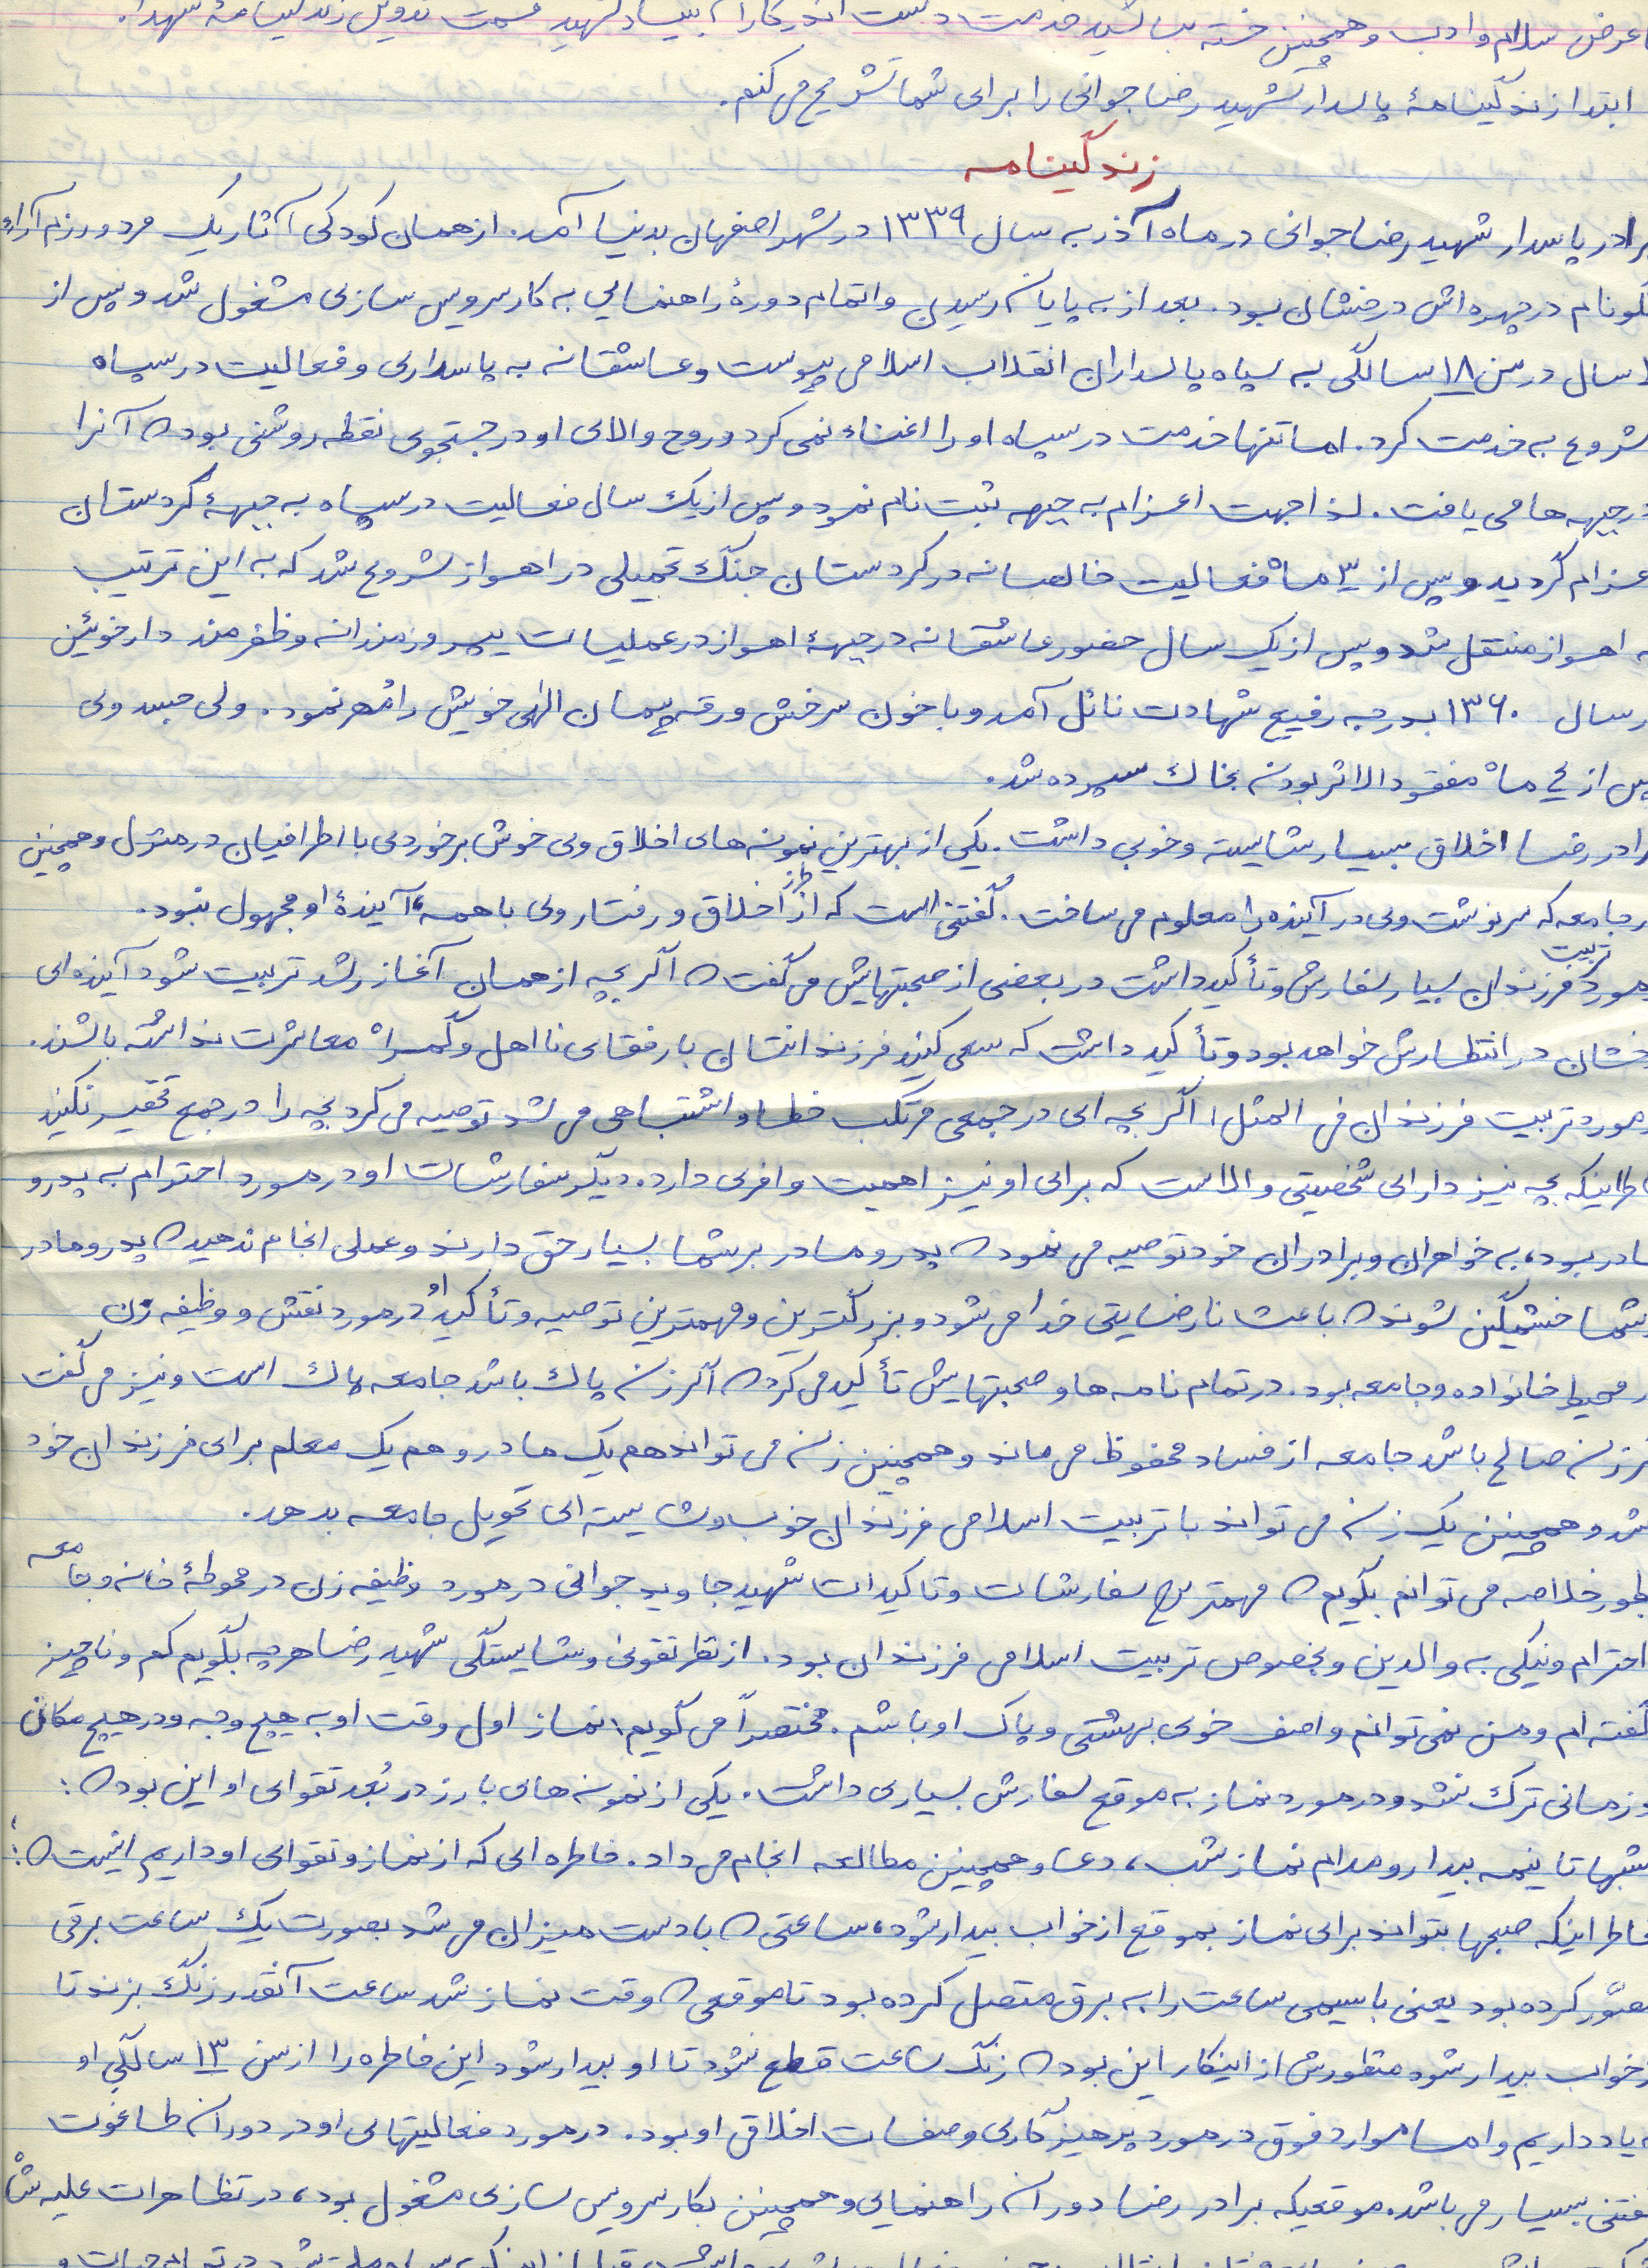 عرض سلام و ادب و همچنین خسته نباشید خدمت دست اندرکاران بنیاد شهید قسمت تدوین زندگینامهٔ شهدا.
ابتدا زندگینامهٔ پاسدار شهید رضا جوانی را برای شما تشریح می کنم.
زندگینامه
برادر پاسدار شهید رضا جوانی در ماه آذر به سال ۱۳۳۹ در شهر اصفهان بدنیا آمد. از همان کودکی آثار یک مرد و رزم آراء
نام در چهره اش درخشان بود. بعد از به پایان رسیدن و اتمام دورهٔ راهنمایی به کار سرویس سازی مشغول شد و پس از
سال در سن ۱۸ سالگی به سپاه پاسداران انقلاب اسلامی پیوست و عاشقانه به پاسداری و فعالیت در سپاه
شروع به خدمت کرد. اما تنها خدمت در سپاه او را اغناء نمی کرد و روح والای او در جستجوی نقطه روشنی بود که آنرا
در جبهه ها می یافت. لذا جهت اعزام به جبهه ثبت نام نمود و پس از یک سال فعالیت در سپاه به جبههٔ کردستان
اعزام گردید و پس از ۳ ماه فعالیت خالصانه در کردستان جنگ تحمیلی در اهواز شروع شد که به این ترتیب
به اهواز منتقل شد و پس از یک سال حضور عاشقانه در جبههٔ اهواز در عملیات پیروزمندانه و ظفرمند دارخوئین
در سال ۱۳۶۰ بدرجه رفیع شهادت نائل آمد و با خون سرخش ورقه پیمان الهی خویش را مُهر نمود. ولی جسد وی
پس از ۴ ماه مفقود الاثر بودن بخاک سپرده شد.
برادر رضا اخلاق بسیار شایسته و خوبی داشت. یکی از بهترین نمونه های اخلاق وی خوش برخوردی با اطرافیان در منزل و همچنین
در جامعه که سرنوشت وی در آینده را معلوم می ساخت. گفتنی است که از طرز اخلاق و رفتار وی با همه، آیندهٔ او مجهول نبود.
در مورد تربیت فرزندان بسیار سفارش و تأکید داشت در بعضی از صحبتهایش می گفت که اگر بچه از همان آغاز رشد تربیت شود آینده ای
درخشان در انتظارش خواهد بود و تأکید داشت که سعی کنید فرزندانتان با رفقای نااهل و گمراه معاشرت نداشته باشند.
در مورد تربیت فرزندان فی المثل، اگر بچه ای در جمعی مرتکب خطا و اشتباهی می شد توصیه می کرد بچه را در جمع تحقیر نکنید
بخاطر اینکه بچه نیز دارای شخصیتی والا است که برای او نیز اهمیت وافری دارد. دیگر سفارشات او در مورد احترام به پدر و
مادر بود، به خواهران و برادران خود توصیه می نمود که پدر و مادر بر شما بسیار حق دارند و عملی انجام ندهید که پدر و مادر
شما خشمگین شوند که باعث نارضایتی خدا می شود و بزرگترین و مهمترین توصیه و تأکید او در مورد نقش و وظیفه زن
در محیط خانواده و جامعه بود. در تمام نامه ها و صحبتهایش تأکید می کرد که اگر زن پاک باشد جامعه پاک است و نیز می گفت
اگر زن صالح باشد جامعه از فساد محفوظ می ماند و همچنین زن می تواند هم یک مادر و هم یک معلم برای فرزندان خود
باشد و همچنین یک زن می تواند با تربیت اسلامی فرزندان خوب و شایسته ای تحویل جامعه بدهد.
بطور خلاصه می توانم بگویم که مهمترین سفارشات و تاکیدات شهید جاوید جوانی در مورد وظیفه زن در محوطهٔ خانه و جامعه
احترام و نیکی به والدین و بخصوص تربیت اسلامی فرزندان بود. از نظر تقوی و شایستگی شهید رضا هر چه بگویم کم و ناچیز
گفته ام و من نمی توانم واصف خوی بهشتی و پاک او باشم. مختصراً می گویم، نماز اول وقت او به هیچ وجه و در هیچ مکان
و زمانی ترک نشد و در مورد نماز به موقع سفارش بسیاری داشت. یکی از نمونه های بارز در بُعد تقوای او این بود که:
شبها تا نیمه بیدار و مدام نماز شب، دعا و همچنین مطالعه انجام می داد. خاطره ای که از نماز و تقوای او داریم اینست که:
بخاطر اینکه صبحها بتواند برای نماز بموقع از خواب بیدار شود، ساعتی که با دست میزان می شد بصورت یک ساعت برقی
کرده بود یعنی با سیمی ساعت را به برق متصل کرده بود تا موقعی که وقت نماز شد ساعت آنقدر زنگ بزند تا
از خواب بیدار شود منظورش از اینکار این بود که زنگ ساعت قطع نشود تا او بیدار شود این خاطره را از سن ۱۳ سالگی او
به یاد داریم و اما موارد فوق در مورد پرهیزگاری و صفات اخلاقی او بود. در مورد فعالیتهای او در دوران طاغوت
گفتنی بسیار می باشد. موقعیکه برادر رضا دوران راهنمایی و همچنین بکار سرویس سازی مشغول بود، در تظاهرات علیه شاه